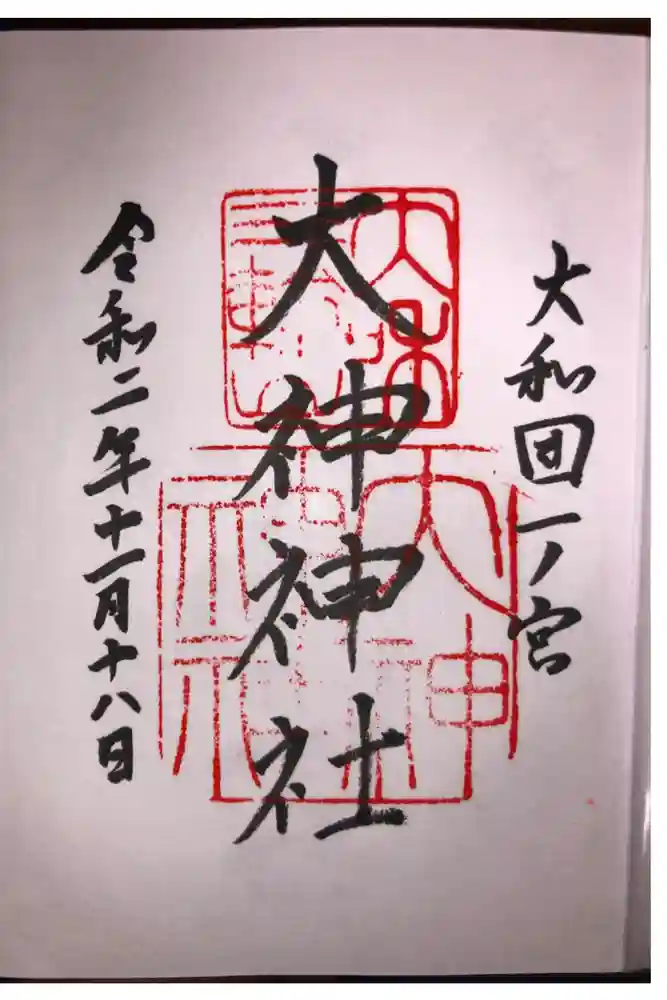 大和国一ノ宮
大神神社
令和二年十一月十八日